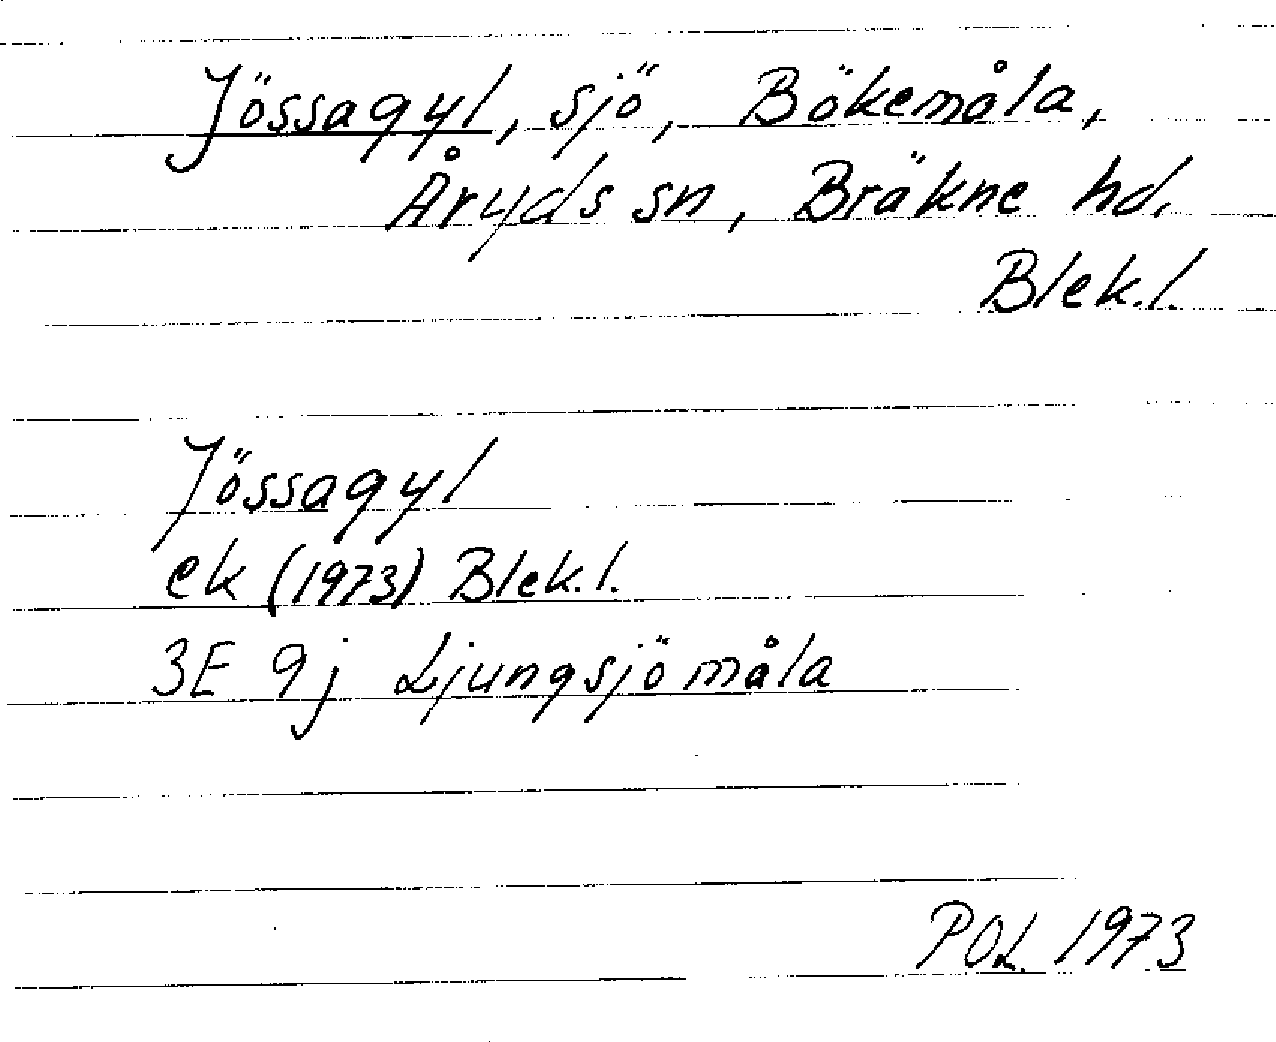 Jössagyl, sjö, Bökemåla,
Åryds sn, Bräkne hd.
Blek.l.
Jössagyl
ek (1973) Blek.l.
3E 9j Ljungsjömåla
POL 1973